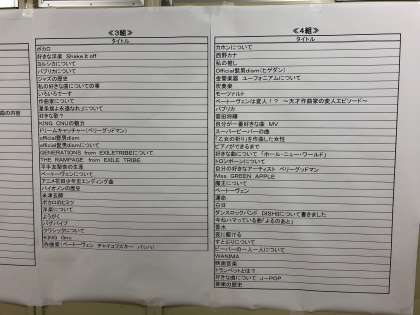 の内容
≪3組≫
タイトル
ボカロ
好きな洋楽 Shake it off
ヨルシカについて
パプリカについて
ジャズの歴史
私の好きな曲についての事
いろいろでーす
作曲家について
好きな歌？
KING GNUの魅力
ドリームキャッチャー(ベリーグッドマン)
official髭男dism
official髭男dismについて
GENERATIONS from EXILETRIBEについて
THE RAMPAGE from EXILE TRIBE
平手友梨奈の生涯
ベートーヴェンについて
バイオンの歴史
米津玄師
ボカロのヒミツ
洋楽について
ようがく
バグパイプ
クラシックについて
KING Gnu
作曲家(ベートーヴェン チャイコフスキー バッハ)
≪4組≫
タイトル
カホンについて
西野カナ
私の推し
Official髭男dism(ヒゲダン)
金管楽器 ユーフォニアムについて
吹奏楽
モーツァルト
ベートーヴェンは変人！？ ～天才作曲家の変人エピソード～
パプリカ
菅田将暉
自分が一番好きな曲 MV
スーパービーバーの曲
「乙女の祈り」を作曲した女性
ピアノができるまで
好きな曲について 「ホール・ニュー・ワールド」
トロンボーンについて
自分の好きなアーティスト ベリーグッドマン
Mrs. GREEN APPLE
魔王について
ベートーヴェン
運命
白日
ダンスロックバンド DISH//について書きました
今私ハマっている曲「よるのあと」
音木
夜に駆ける
すとぷりについて
ビーバーの一人一人について
WANIMA
映画音楽
トランペットとは？
好きな曲について J-POP
音楽の歴史